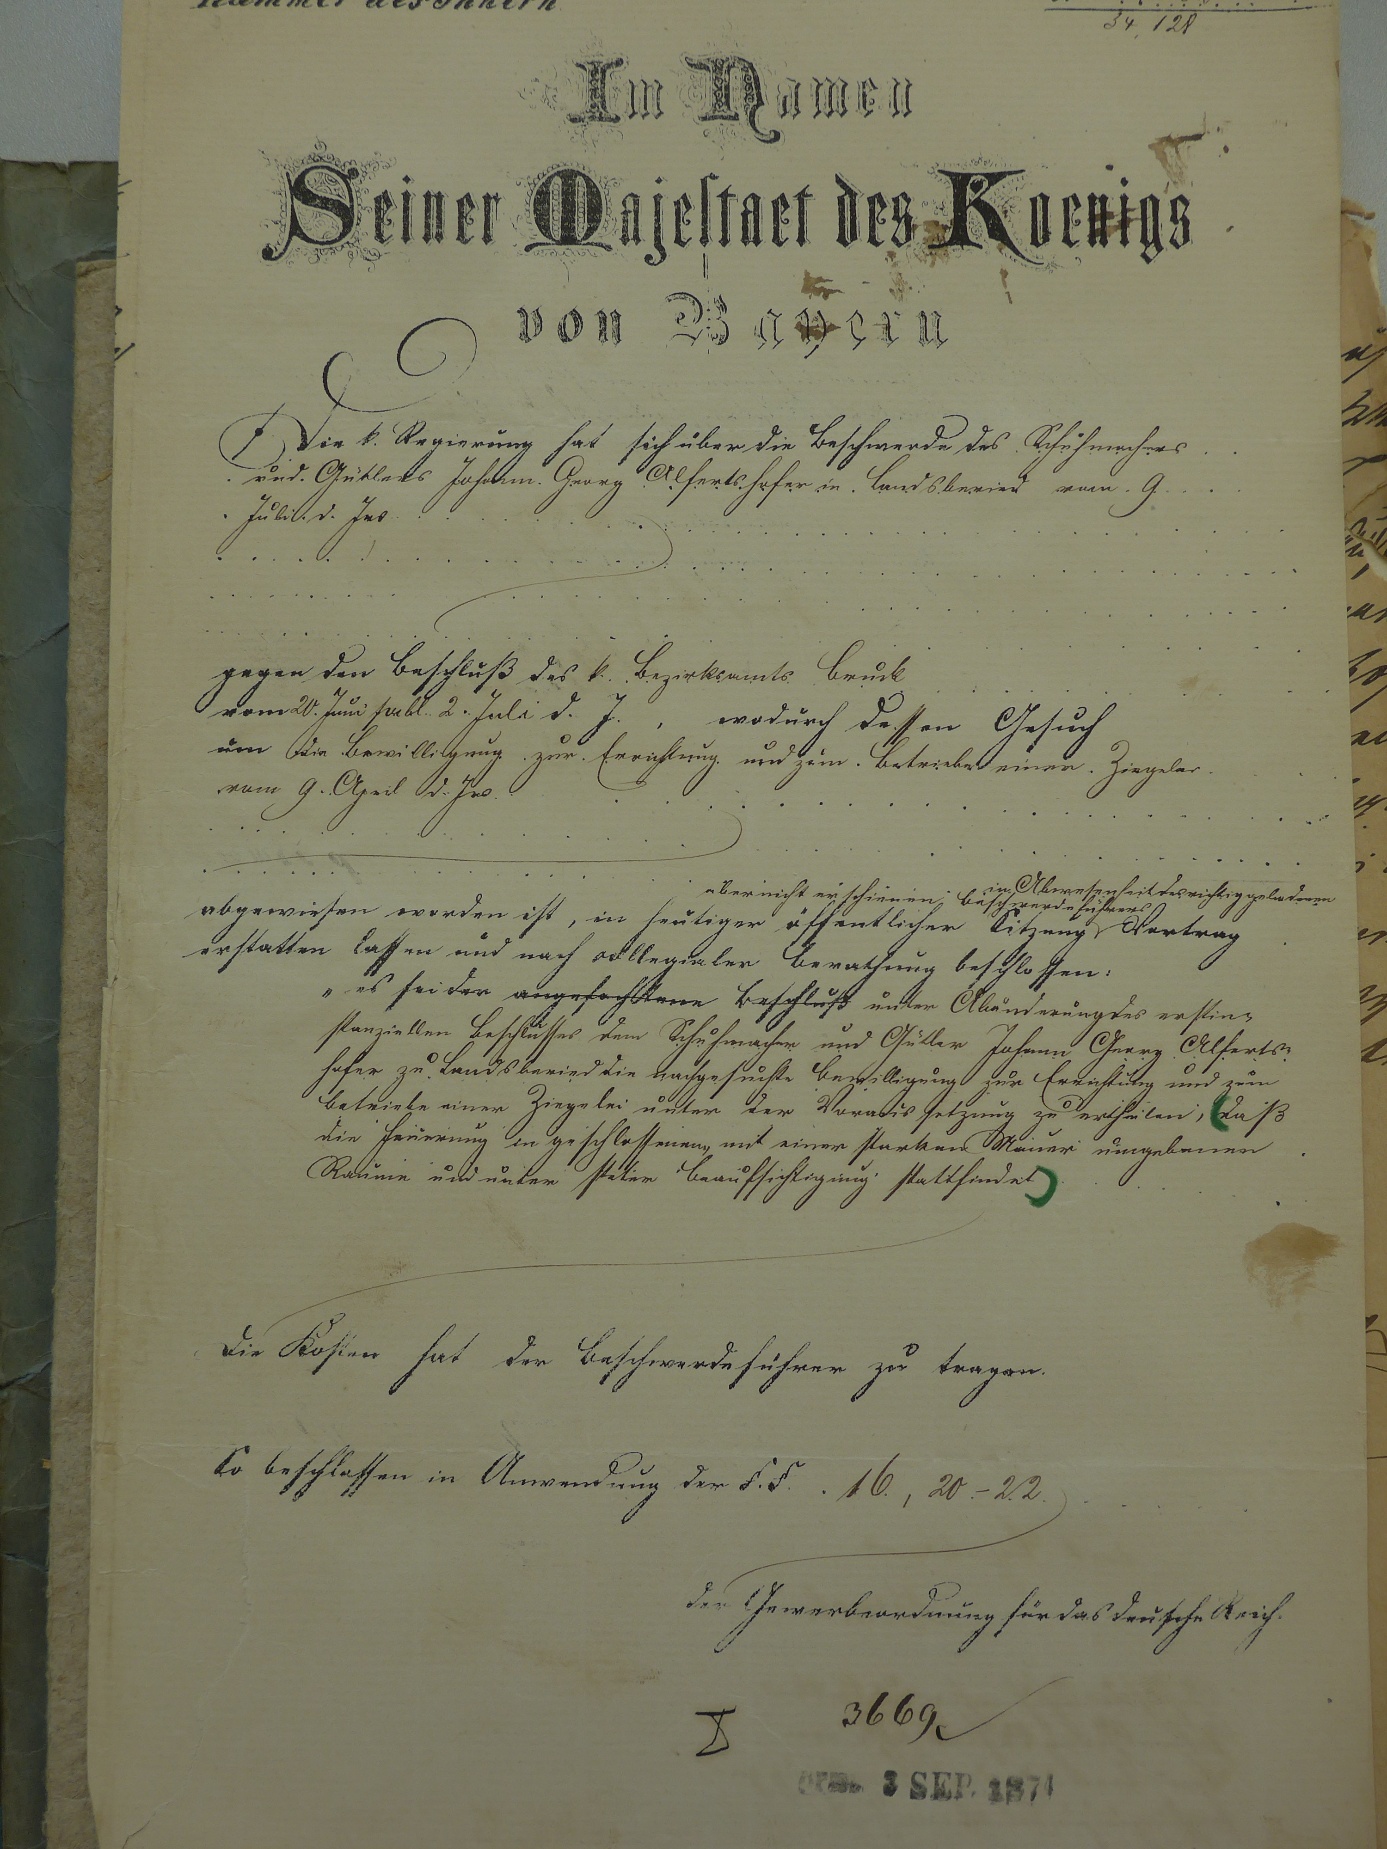 Kammer des Innern
34,128
Im Namen
Seiner Majestaet des Koenigs
von Bayern
Die k. Regierung hat sich über die Beschwerde des Schuhmachers
und Gütlers Johann Georg Alfertshofer in Landsberied vom 9.
Juli d. Irs
gegen den Beschluß des k. Bezirksamts Bruck
vom 20. Juni publ. 2. Juli d. J., wodurch dessen Gesuch
um die Bewilligung zur Errichtung und zum Betriebe einer Ziegelei
vom 9. April d. Irs.
aber nicht erschienen, in Abwesenheit des richtig geladenen
Beschwerdeführers
abgewiesen worden ist, in heutiger öffentlicher Sitzung Vortrag
erstatten lassen und nach collegialer Berathung beschlossen:
" es sei der angefochtene Beschluß unter Abänderung des erstin-
stanziellen Beschlusses dem Schuhmacher und Gütler Johann Georg Alferts-
hofer zu Landsberied die nachgesuchte Bewilligung zur Errichtung und zum
Betriebe einer Ziegelei unter der Voraussetzung zu ertheilen, daß
die Feuerung in geschlossenem, mit einer starken Mauer umgebenen
Raume und unter steter Beaufsichtigung stattfindet
Die Kosten hat der Beschwerdeführer zu tragen.
So beschlossen in Anwendung der §.§. 16., 20-22.
der Gewerbeordnung für das deutsche Reich.
3669
3 SEP. 1874